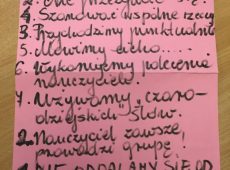 2. Nie przezywać się.
4. Szanować wspólne rzeczy
3. Przychodzimy punktualnie
5. Mówimy cicho.....
6. Wykonujemy polecenia
nauczyciela.
7. Używamy "czaro-
dziejskich" słów.
2. Nauczyciel zawsze
prowadzi grupę!
1 NIE ODDALAMY SIĘ OD